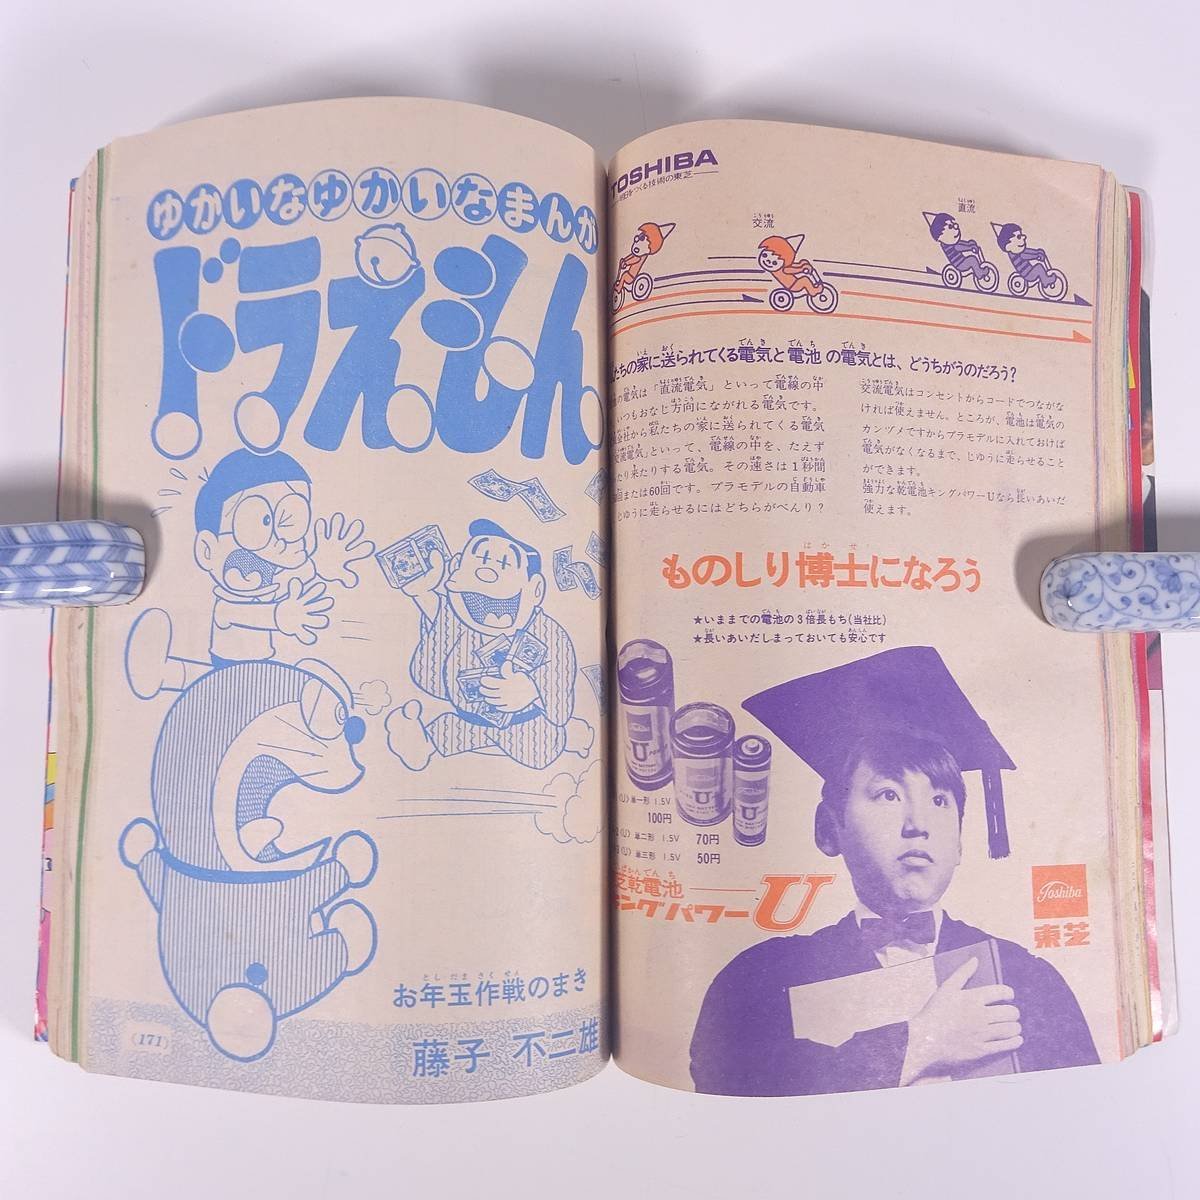 ゆかいなゆかいなまんが
ドラえもん
お年玉作戦のまき
としだまさくせん
藤子 不二雄
(171)
TOSHIBA
技術の東芝
交流
こうりゅう
直流
ちょくりゅう
たちの家に送られてくる電気と電池の電気とは、どうちがうのだろう?
の電気は「直流電気」といって電線の中
いつもおなじ方向にながれる電気です。
会社から私たちの家に送られてくる電気
交流電気」といって、電線の中を、たえず
たり来たりする電気。その速さは1秒間
回または60回です。プラモデルの自動車
じゆうに走らせるにはどちらがべんり?
交流電気はコンセントからコードでつながな
ければ使えません。ところが、電池は電気の
カンヅメですからプラモデルに入れておけば
電気がなくなるまで、じゆうに走らせること
ができます。
強力な乾電池キングパワーUなら長いあいだ
使えます。
はかせ
ものしり博士になろう
★いままでの電池の3倍長もち(当社比)
★長いあいだしまっておいても安心です
U
U
U
(U) 単一形 1.5V
100円
(U) 単二形 1.5V 70円
(U) 単三形 1.5V 50円
乾電池
キングパワーU
Toshiba
東芝